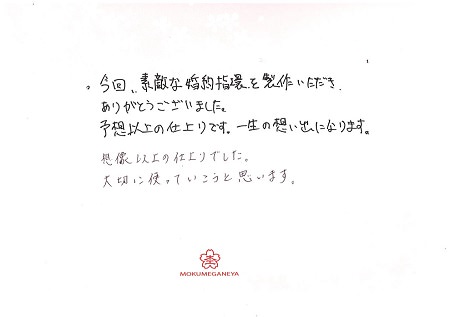 今回、素敵な婚約指環を製作いただき
ありがとうございました。
予想以上の仕上りです。一生の想い出になります。
想像以上の仕上りでした。
大切に使っていこうと思います。
MOKUMEGANEYA